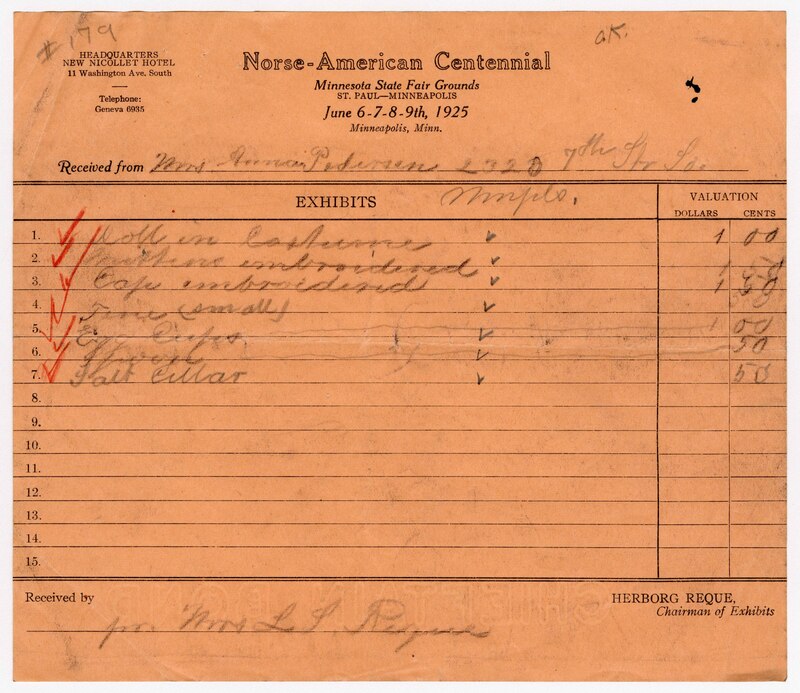 # 179
O.K.
HEADQUARTERS
NEW NICOLLET HOTEL
11 Washington Ave. South
Telephone:
Geneva 6935
Norse-American Centennial
Minnesota State Fair Grounds
ST. PAUL—MINNEAPOLIS
June 6-7-8-9th, 1925
Minneapolis, Minn.
Received from Mrs Anna Pedersen 2323 7th Str So.
Mnpls.
EXHIBITS VALUATION
DOLLARS CENTS
1. Doll in Costume 1 00
2. Mittens embroidered 1 50
3. Cap embroidered 1 50
4. Tine (small)
5. Egg Cups 1 00
6. Spoon 50
7. Salt Cellar 50
8.
9.
10.
11.
12.
13.
14.
15.
Received by
per Mrs L. S. Reque
HERBORG REQUE,
Chairman of Exhibits